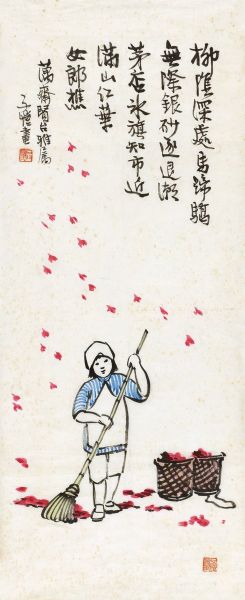 柳陰深處馬蹄驕
無際銀砂逐退潮
茅店冰旗知市近
滿山红葉
女郎樵
齋賢台雅屬
子愷畫